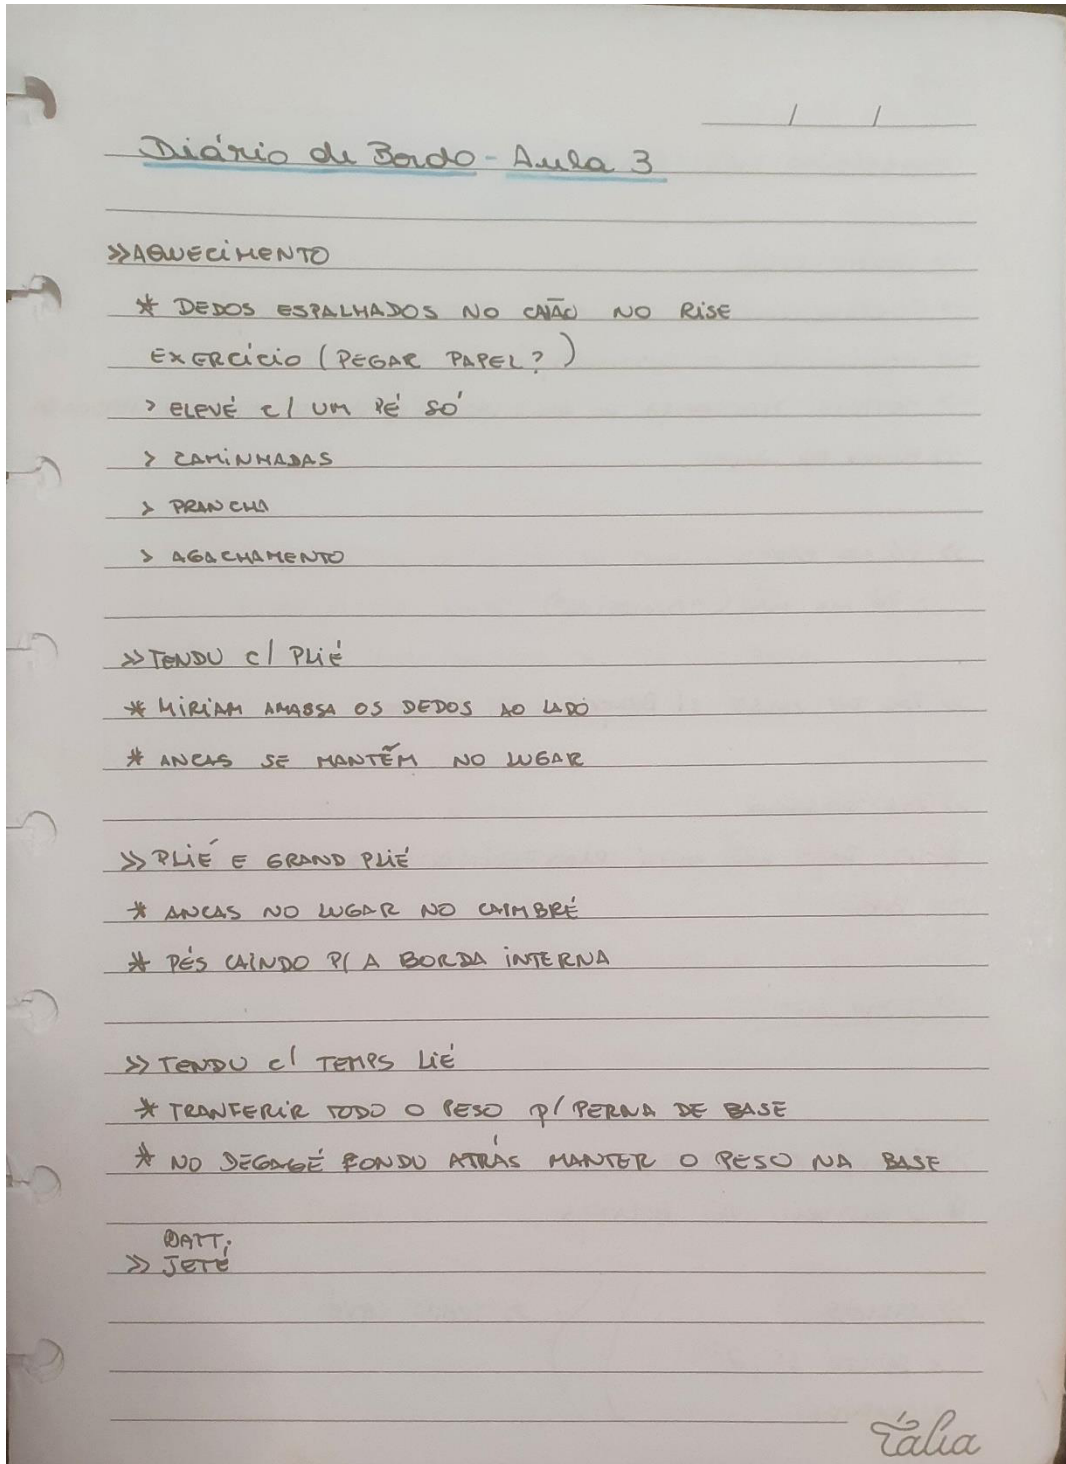 / /
Diário de Bordo - Aula 3
>> AQUECIMENTO
* DEDOS ESPALHADOS NO CHÃO NO RISE
EXERCÍCIO (PEGAR PAPEL?)
> ELEVÉ C/ UM PÉ SÓ
> CAMINHADAS
> PRANCHA
> AGACHAMENTO
>> TENDU C/ PLIÉ
* MIRIAM AMASSA OS DEDOS AO LADO
* ANCAS SE MANTÊM NO LUGAR
>> PLIÉ E GRAND PLIÉ
* ANCAS NO LUGAR NO CAIMBRÉ
* PÉS CAINDO P/ A BORDA INTERNA
>> TENDU C/ TEMPS LIÉ
* TRANFERIR TODO O PESO P/ PERNA DE BASE
* NO DEGAGÉ FONDU ATRÁS MANTER O PESO NA BASE
BATT.
>> JETÉ
Talia